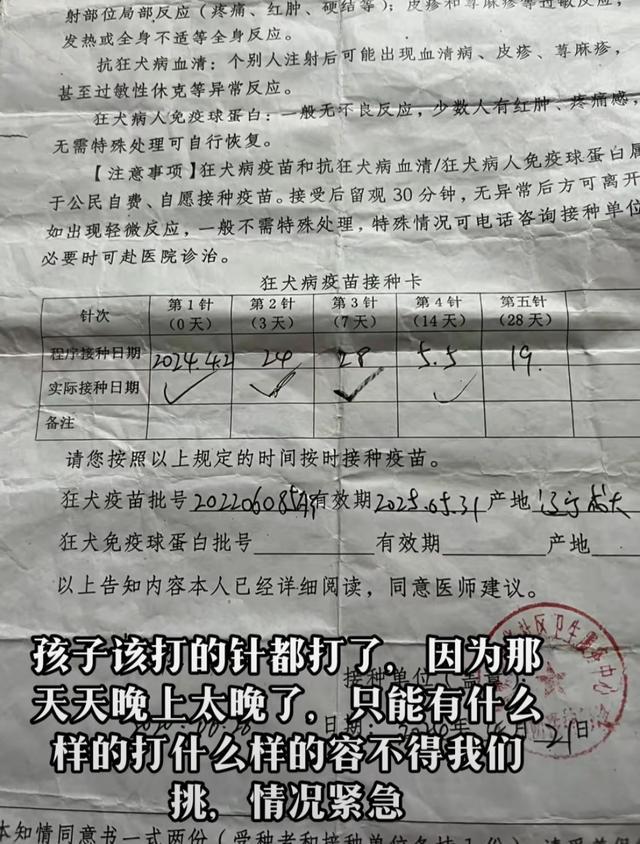 射部位局部反应（疼痛、红肿、硬结等）；皮疹和荨麻疹等过敏反应，
发热或全身不适等全身反应。
抗狂犬病血清：个别人注射后可能出现血清病、皮疹、荨麻疹，
甚至过敏性休克等异常反应。
狂犬病人免疫球蛋白：一般无不良反应，少数人有红肿、疼痛感，
无需特殊处理可自行恢复。
【注意事项】狂犬病疫苗和抗狂犬病血清/狂犬病人免疫球蛋白属
于公民自费、自愿接种疫苗。接受后留观 30 分钟，无异常后方可离开
如出现轻微反应，一般不需特殊处理，特殊情况可电话咨询接种单位
必要时可赴医院诊治。
狂犬病疫苗接种卡
针次 第1针（0天） 第2针（3天） 第3针（7天） 第4针（14天） 第五针（28天）
程序接种日期 2024.4.21 24 28 5.5 19.
实际接种日期
备注
请您按照以上规定的时间按时接种疫苗。
狂犬疫苗批号 有效期 2025.05.31 产地 辽宁成大
狂犬免疫球蛋白批号 有效期 产地
以上告知内容本人已经详细阅读，同意医师建议。
孩子该打的针都打了，因为那
接种单位
社区卫生服务中心
天天晚上太晚了，只能有什么
日期： 年 月 21日
样的打什么样的容不得我们
挑，情况紧急
本知情同意书一式两份